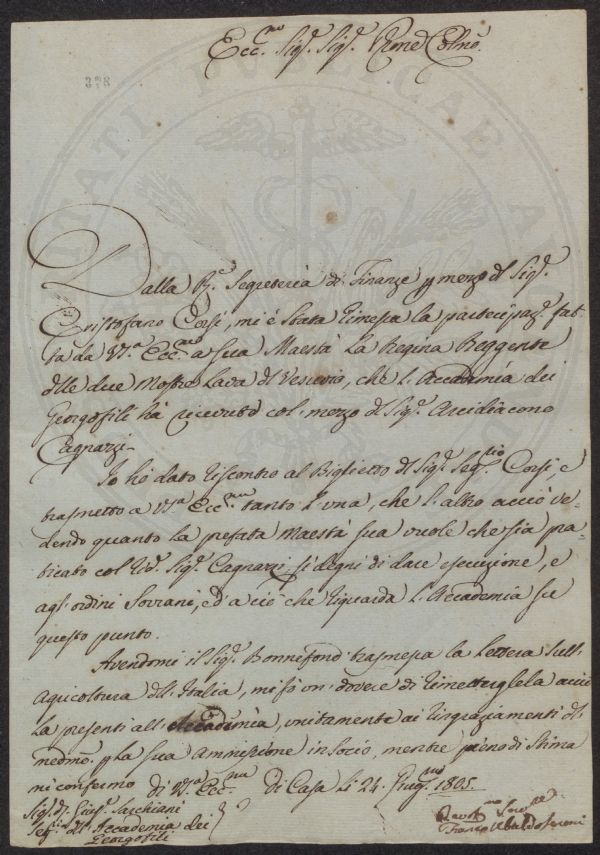 Ecc.mo Sig.r Sig.r Prone Colmo.
378
Dalla R.a Segreteria di Finanze p mezzo dl Sig.r
Cristofano Corsi, mi è stata rimessa la partecipaz.e fat-
ta da V.a Ecc.za a Sua Maestà La Regina Reggente
dlle due Mostre Lava dl Vesuvio, che l'Accademia dei
Georgofili hà ricevuto col mezzo dl Sig.r Arcidiacono
Cagnazzi.
Io hò dato riscontro al Biglietto dl Sig.r Seg.rio Corsi, e
trasmetto a V.a Ecc.za tanto l'una, che l'altro acciò ve-
dendo quanto la prefata Maestà Sua vuole che sia pra-
ticato col Sig.r Cagnazzi, si degni di dare esecuzione, e
agl'ordini Sovrani, ed a ciò che riguarda l'Accademia su
questo punto.
Avendomi il Sig.r Bonnefond trasmessa la Lettera sull'
agricoltura dll'Italia, mi fò un dovere di rimettergliela acciò
la presenti all'Accademia, unitamente ai ringraziamenti dl
medmo. p la sua ammissione in Socio, mentre pieno di Stima
mi confermo di V.a Ecc.za Di Casa li 24. Giug.no 1805.
Sig.r D. Gius.e Sarchiani
Seg.rio dll'Accademia dei
Georgofili